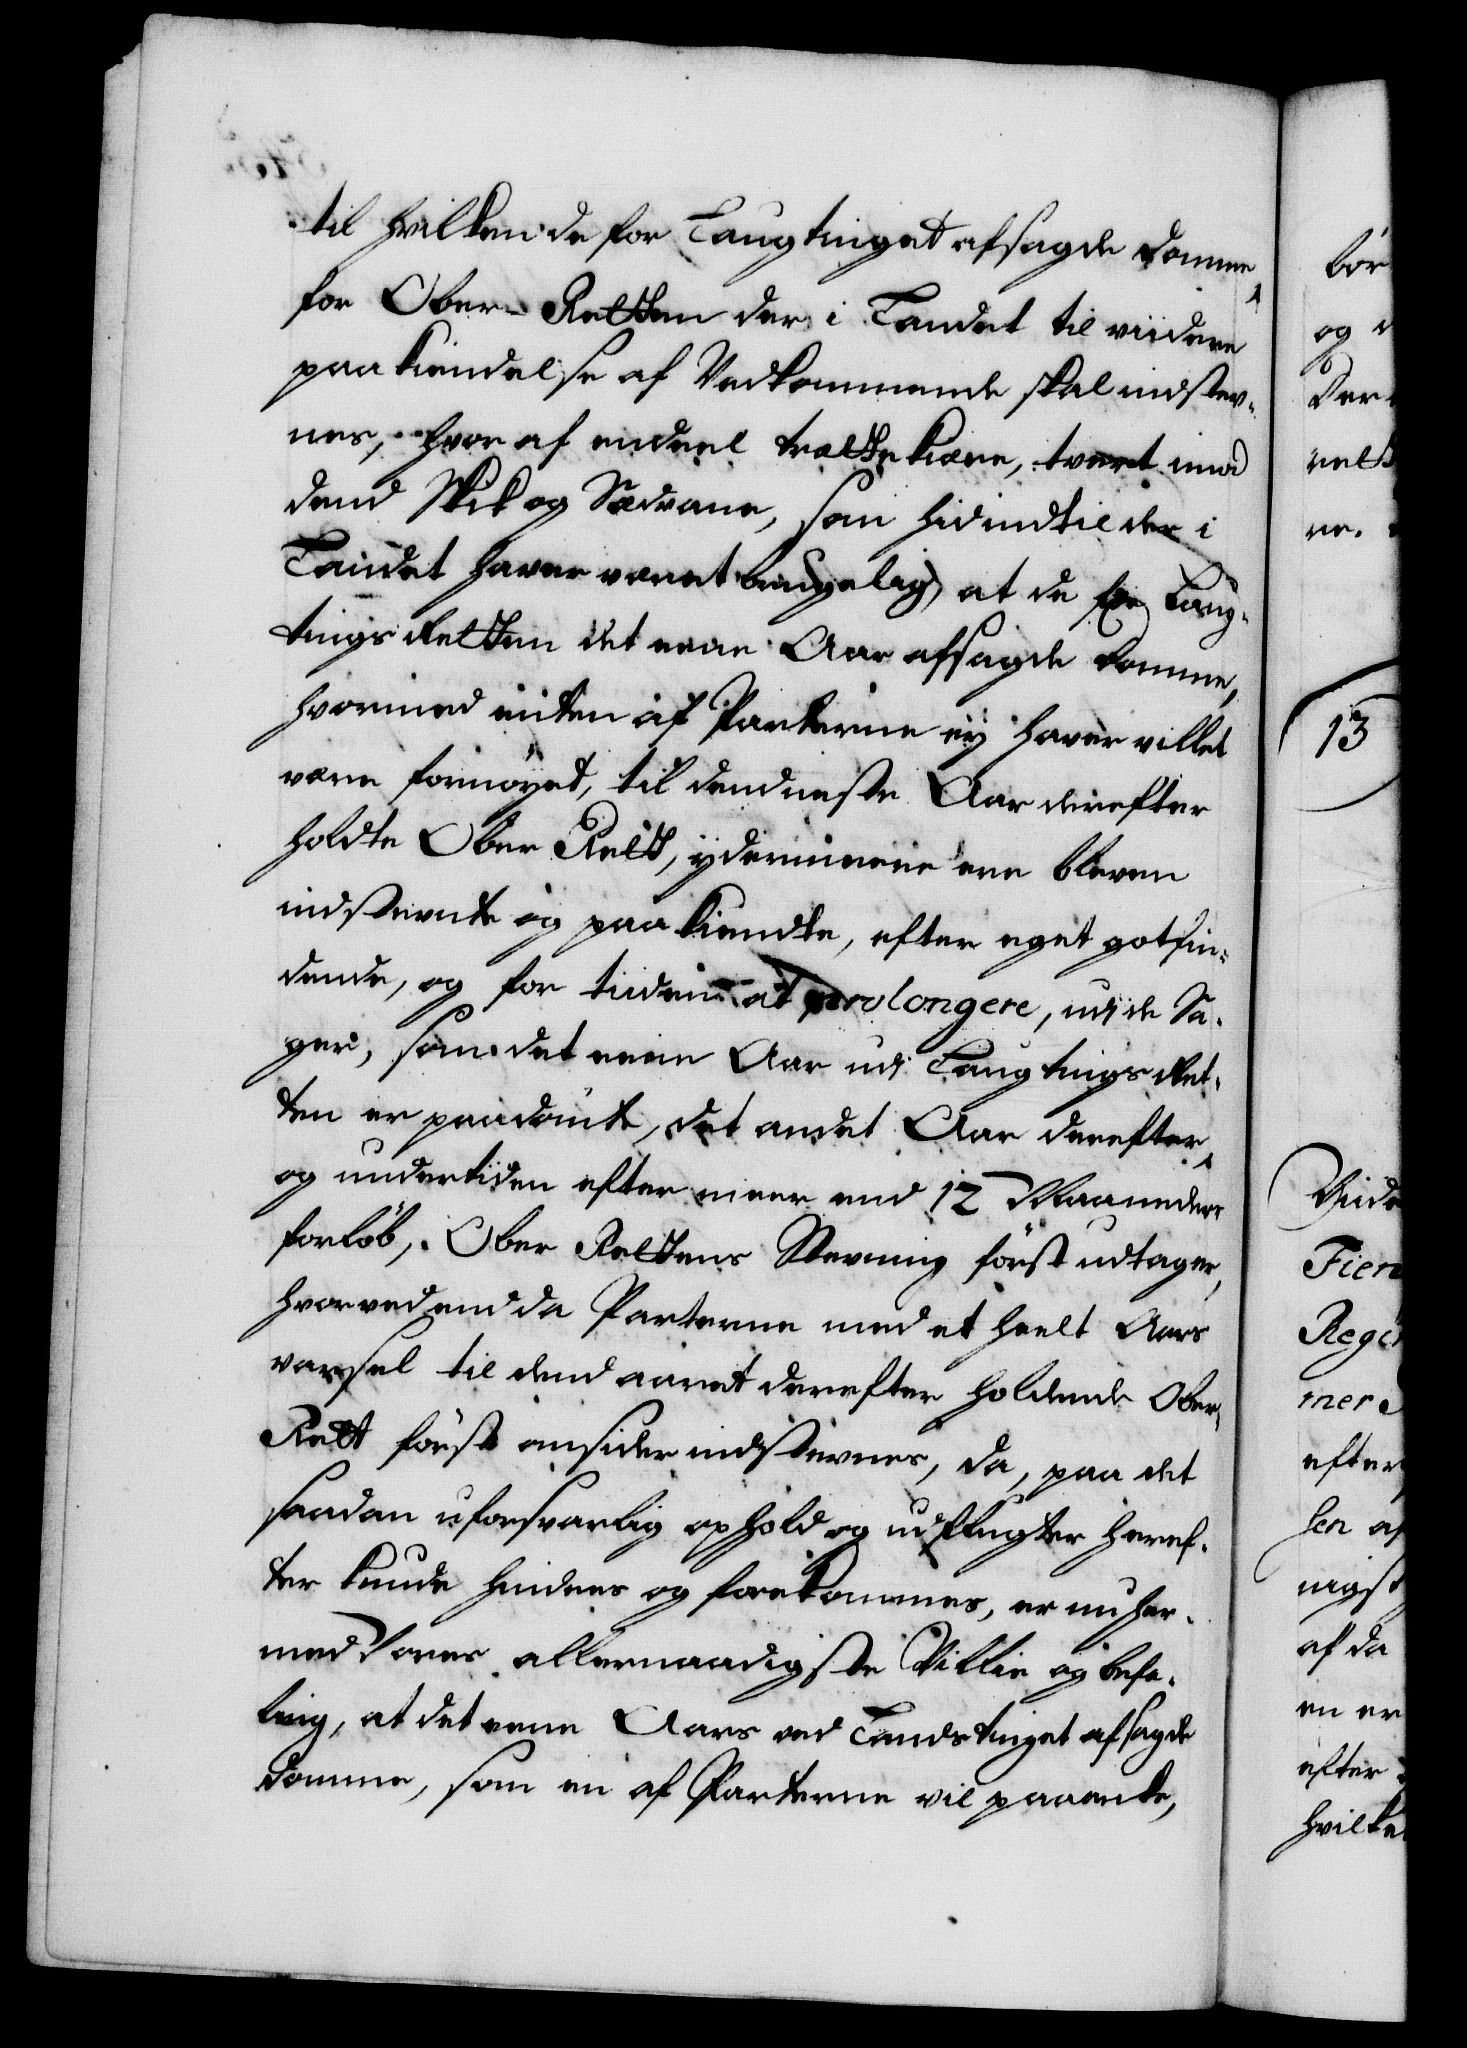 til hvilken de for Laugtinget afsagde Domme
for Ober-Retten der i Landet til viidere
paakiendelse af Vedkommende skal indstev-
nes, hvor af endeel trættekiære, tvert imod
dend Skik og Sædvane, som hidindtil der i
Landet haver været brugelig, at de for Laug-
tings Retten det eene Aar afsagde Domme,
hvormed enten af Parterne ey haver villet
være fornøyet, til dend neste Aar derefter
holdte Ober Rett, ydermeere ere bleven
indstevnte og paakiendte, efter eget gotfin-
dende, og for tiiden at prolongere, udi de Sa-
ger, som det eene Aar udi Laugtings Ret-
ten er paadömt, det andet Aar derefter
og undertiden efter meer end 12 Maaneders
forlöb, Ober Rettens Stevning först udtager,
hvorved end da Parterne med et heelt Aars
varsel til dend aaret derefter holdende Ober-
Rett först omsider indstevnes, da, paa det
saadan uforsvarlig ophold og udflugter heref-
ter kunde hindres og forekommes, er nu her-
med Vores allernaadigste Villie og befa-
ling, at det eene Aars ved Landstinget afsagde
Domme, som en af Parterne vil paaanke,
bör
og
Der
rett
re.
13
Viid
Fier
Reg
mer
efter
sen af
nigst
af da
en er
efter
hvilke